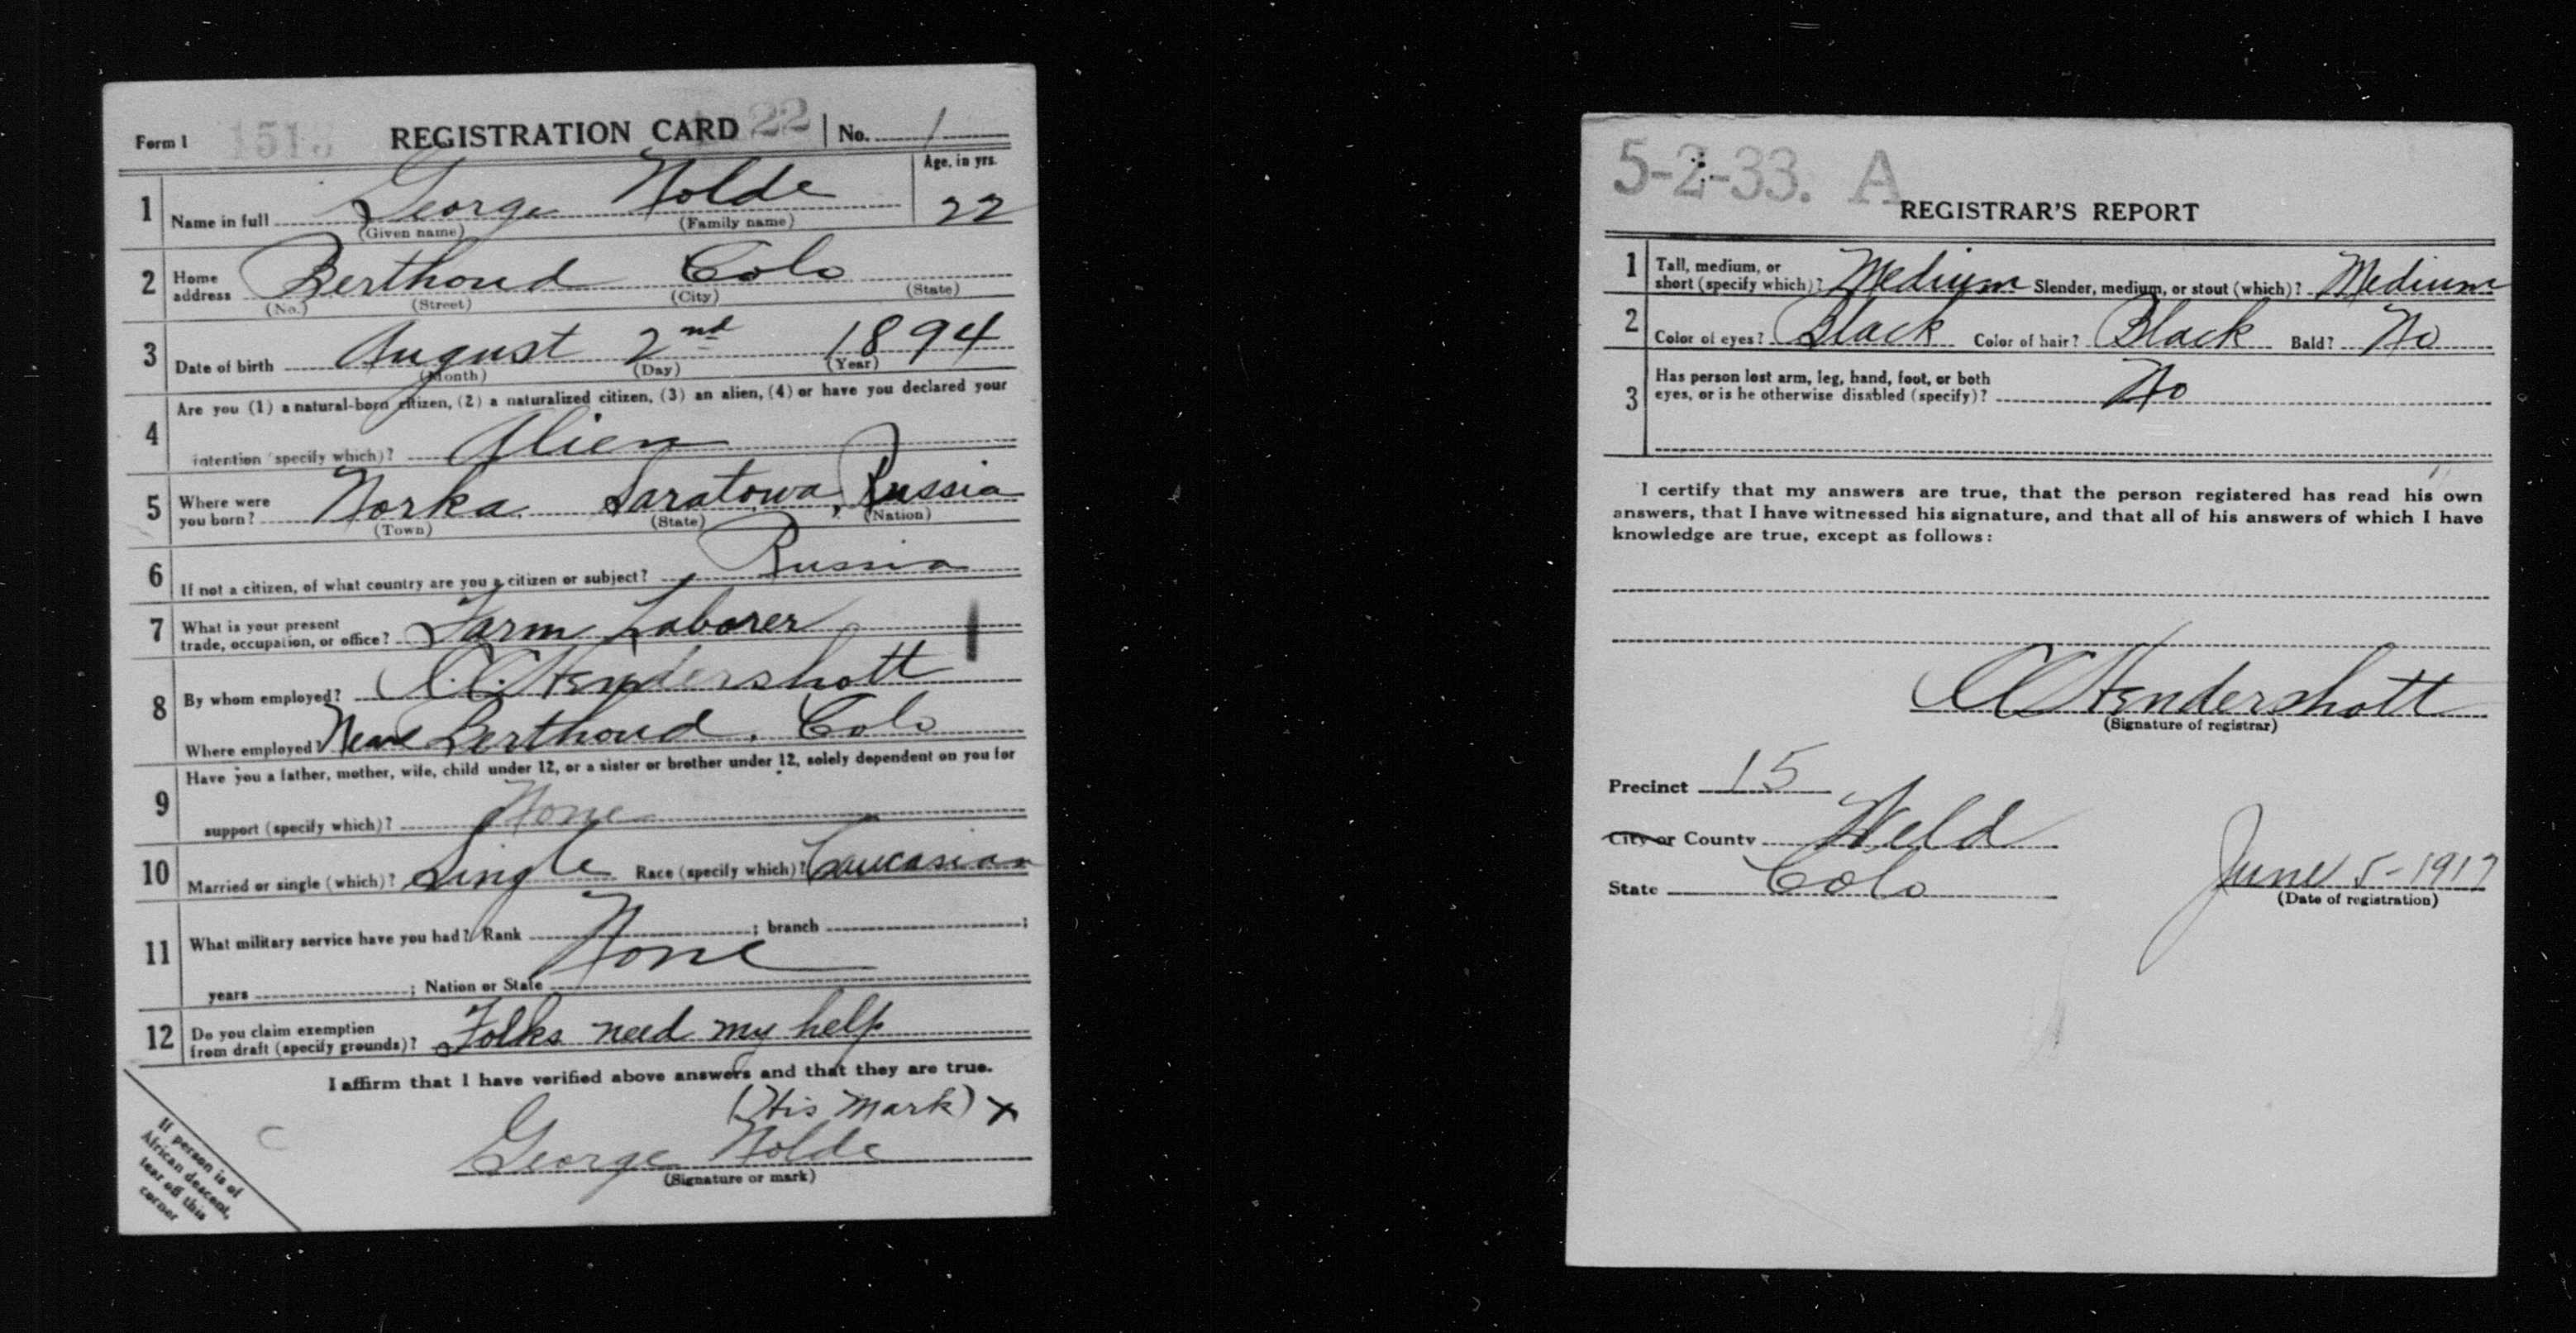 Form 1 REGISTRATION CARD 22 No. 1
1 Name in full George Nolde Age, in yrs. 22
(Given name) (Family name)
2 Home address Berthoud Colo
(No.) (Street) (City) (State)
3 Date of birth August 2nd 1894
(Month) (Day) (Year)
4 Are you (1) a natural-born citizen, (2) a naturalized citizen, (3) an alien, (4) or have you declared your
intention (specify which)? Alien
5 Where were you born? Norka Saratowa, Russia
(Town) (State) (Nation)
6 If not a citizen, of what country are you a citizen or subject? Russia
7 What is your present trade, occupation, or office? Farm Laborer
8 By whom employed? C.C. Hendershott
Where employed? Near Berthoud, Colo
9 Have you a father, mother, wife, child under 12, or a sister or brother under 12, solely dependent on you for
support (specify which)? None
10 Married or single (which)? Single Race (specify which)? Caucasian
11 What military service have you had? Rank ; branch ;
years ; Nation or State None
12 Do you claim exemption from draft (specify grounds)? Folks need my help
I affirm that I have verified above answers and that they are true.
(His Mark) x
George Nolde
(Signature or mark)
If person is of
African descent,
tear off this
corner
5-2-33. A
REGISTRAR'S REPORT
1 Tall, medium, or short (specify which)? Medium Slender, medium, or stout (which)? Medium
2 Color of eyes? Black Color of hair? Black Bald? No
3 Has person lost arm, leg, hand, foot, or both
eyes, or is he otherwise disabled (specify)? No
I certify that my answers are true, that the person registered has read his own
answers, that I have witnessed his signature, and that all of his answers of which I have
knowledge are true, except as follows:
CC Hendershott
(Signature of registrar)
Precinct 15
City or County Weld
State Colo
June 5-1917
(Date of registration)